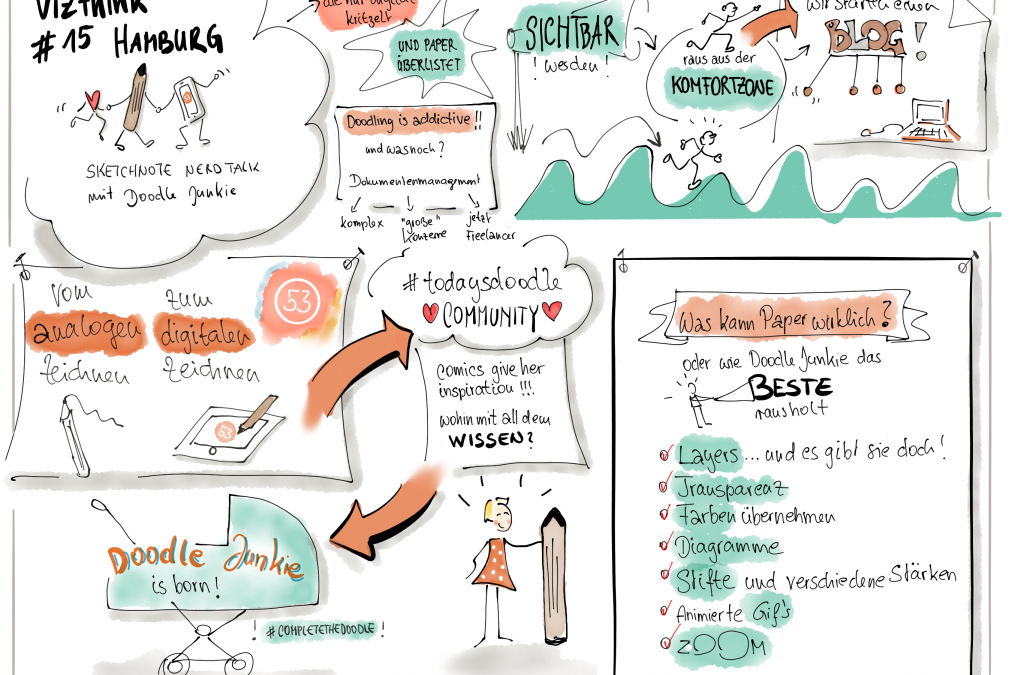 vizthink
# 15 HAMBURG
SKETCHNOTE NERD TALK
mit Doodle Junkie
die nur digital
kritzelt
UND PAPER
überlistet
Doodling is addictive !!
und was noch ?
Dokumentenmanagement
komplex
"große"
Konzerne
jetzt
Freelancer
SICHTBAR
! werden !
raus aus der
KOMFORTZONE
wir starten einen
BLOG !
vom
analogen
zeichnen
zum
digitalen
zeichnen
53
53
#todaysdoodle
COMMUNITY
Comics give her
inspiration !!!
wohin mit all dem
WISSEN?
Doodle Junkie
is born !
! #COMPLETETHEDOODLE !
Was kann Paper wirklich ?
oder wie Doodle Junkie das
BESTE
rausholt
Layers ... und es gibt sie doch !
Transparenz
Farben übernehmen
Diagramme
Stifte und verschiedene Stärken
Animierte Gif's
ZOOM